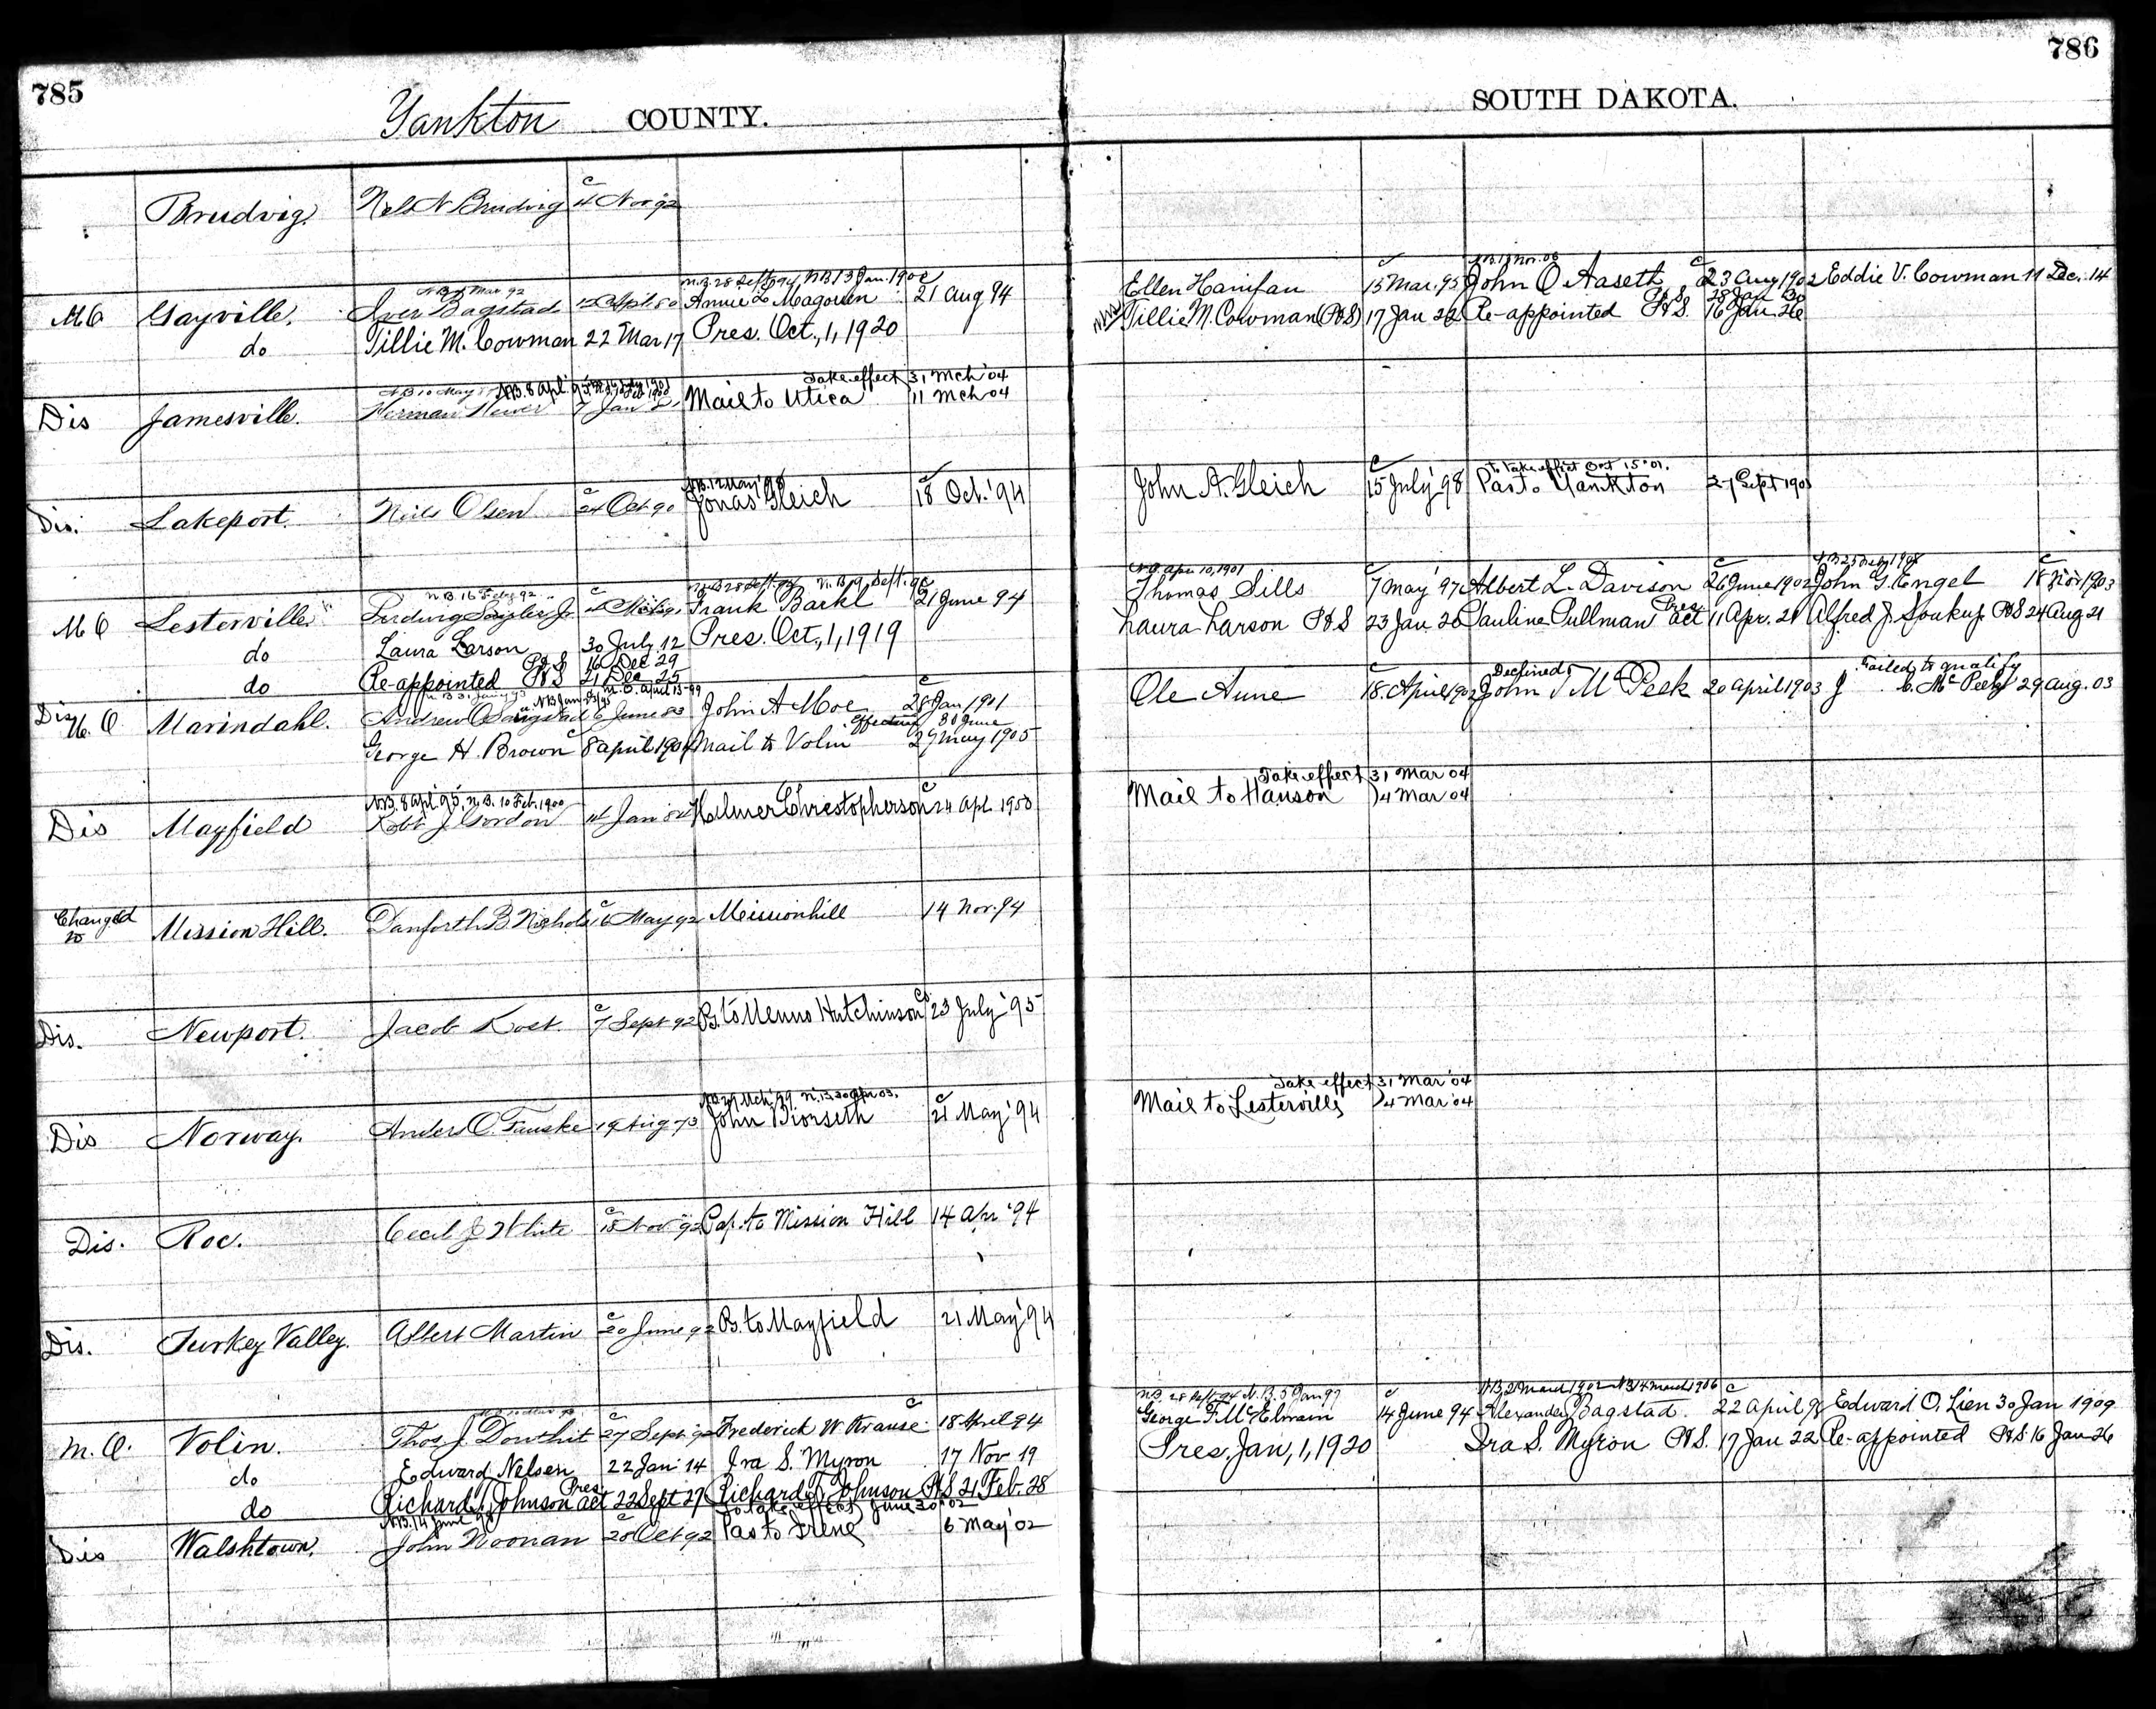 785
786
Yankton COUNTY.
SOUTH DAKOTA.
Brudvig. Nels N Brudvig c 4 Nov 92
N.B. 28 Sept 94 N.B. 13 Jan. 1902
M O Gayville. Iver Bagstad Annie L. Magouen 21 Aug 94
do Tillie M. Cowman 22 Mar 17 Pres. Oct., 1, 1920
Ellen Hanifan c 15 Mar. 95 John O Aaseth c 23 Aug 1902 Eddie V. Cowman 11 Dec. 14
P & S 28 Jan 30
Tillie M. Cowman (P&S) 17 Jan 22 Re-appointed P&S. 16 Jan 26
N.B. 8 Apl. 95
Take effect 31 Mch '04
Dis Jamesville. Herman Mail to Utica 11 Mch 04
N.B. 12 May '98
Dis. Lakeport. Niels Olsen c 24 Oct 90 Jonas Gleich c 18 Oct. '94
to take effect Oct 15 '01.
John A. Gleich c 15 July '98 Pas to Yankton 27 Sept 1901
N.B. 16 Feby 92 N.B. 28 Sept. N.B. 9 Sept. 96
M O Lesterville. Ludwig Jr. c Frank Barkl 21 June 94
do Laura Larson 30 July 12 Pres. Oct., 1, 1919
P & S 16 Dec 29
do Re-appointed P&S 21 Dec 25
N.B. Apr 10, 1901
Thomas Sills c 7 May '97 Albert L. Davison c 26 June 1902 John G. Engel c 18 Nov 1903
Laura Larson P&S 23 Jan 26 Pauline Pullman Pres. act 11 Apr. 21 Alfred J. Soukup P&S 24 Aug 21
N.B. Jan 23/95 N.B. April 13-99
Dis M. O. Marindahl. Andrew 6 June 83 John A Moe c 28 Jan 1901
effective 30 June
George H. Brown c 8 April 1904 Mail to Volin 27 May 1905
Declined Failed to qualify
Ole Aune c 18 April 1902 John T McPeek 20 April 1903 J. C. McPeek 29 Aug. 03
N.B. 8 Apl 95, N.B. 10 Feb. 1900
Dis Mayfield Robt J. Gordon 14 Jan Halmer Christopherson c 24 Apl 1900
Take effect 31 Mar 04
Mail to Hanson 14 Mar 04
Changed to Mission Hill. Danforth B Nichols c 6 May 92 Missionhill 14 Nov. 94
Dis. Newport. Jacob c 7 Sept 92 P. to Menno Hutchinson Co 23 July '95
N.B. 27 Mch. '99 N.B. 30 Apr 03.
Dis Norway. Anders O. Fauske 19 Aug 73 John Biorseth c 21 May '94
Take effect 31 Mar '04
Mail to Lesterville 14 Mar '04
Dis. Roc. Cecil J White c 18 Nov 92 Pap. to Mission Hill 14 Apr '94
Dis. Turkey Valley. Albert Martin c 20 June 92 P. to Mayfield 21 May '94
M. O. Volin. Thos. J. Douthit c 27 Sept 92 Frederick W Krause c 18 April 94
do Edward Nelsen 22 Jan 14 Ira S. Myron 17 Nov 19
do Richard T. Johnson Pres act 22 Sept 27 Richard T. Johnson P&S 21 Feb. 28
N.B. 28 Sept 94 N.B. 5 Jan 97 N.B. 21 March 1902 N.B. 14 March 1906
George F. McElwain c 14 June 94 Alexander Bagstad c 22 April 98 Edward O. Lien 30 Jan 1909
Pres. Jan, 1, 1920 Ira S. Myron P&S. 17 Jan 22 Re-appointed P&S 16 Jan 26
N.B. 14 June To take effect June 30 '02
Dis Walshtown. John Noonan c 20 Oct 92 Pas to Irene 6 May '02